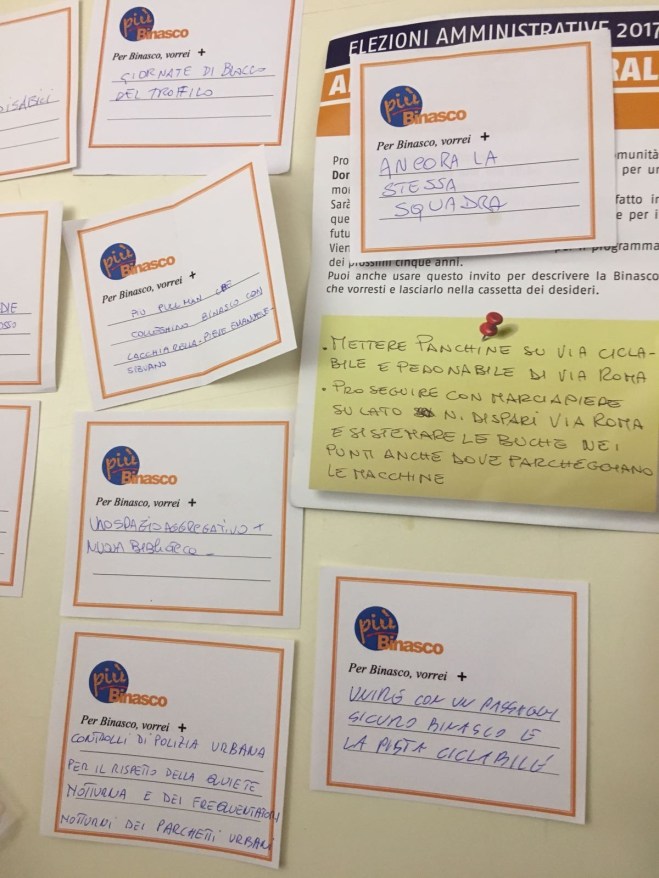 DISABILI
più
Binasco
Per Binasco, vorrei +
GIORNATE DI BLOCCO
DEL TRAFFICO
ELEZIONI AMMINISTRATIVE 2017
più
Binasco
Per Binasco, vorrei +
ANCORA LA
STESSA
SQUADRA
Pro
munità
Don
per un
mo
Sarà
fatto in
que
e per i
futu
Vien
programma
dei prossimi cinque anni.
Puoi anche usare questo invito per descrivere la Binasco
che vorresti e lasciarlo nella cassetta dei desideri.
più
Binasco
Per Binasco, vorrei +
PIÙ PULLMAN CHE
COLLEGHINO BINASCO CON
LACCHIARELLA-PIEVE EMANUELE-
SIZIANO
• METTERE PANCHINE SU VIA CICLA-
BILE E PEDONABILE DI VIA ROMA
• PROSEGUIRE CON MARCIAPIEDE
SU LATO N. DISPARI VIA ROMA
E SISTEMARE LE BUCHE NEI
PUNTI ANCHE DOVE PARCHEGGIANO
LE MACCHINE
più
Binasco
Per Binasco, vorrei +
UNO SPAZIO AGGREGATIVO +
NUOVA BIBLIOTECA
più
Binasco
Per Binasco, vorrei +
UNIRE CON UN PASSAGGIO
SICURO BINASCO E
LA PISTA CICLABILE
più
Binasco
Per Binasco, vorrei +
CONTROLLI DI POLIZIA URBANA
PER IL RISPETTO DELLA QUIETE
NOTTURNA E DEI FREQUENTATORI
NOTTURNI DEI PARCHETTI URBANI